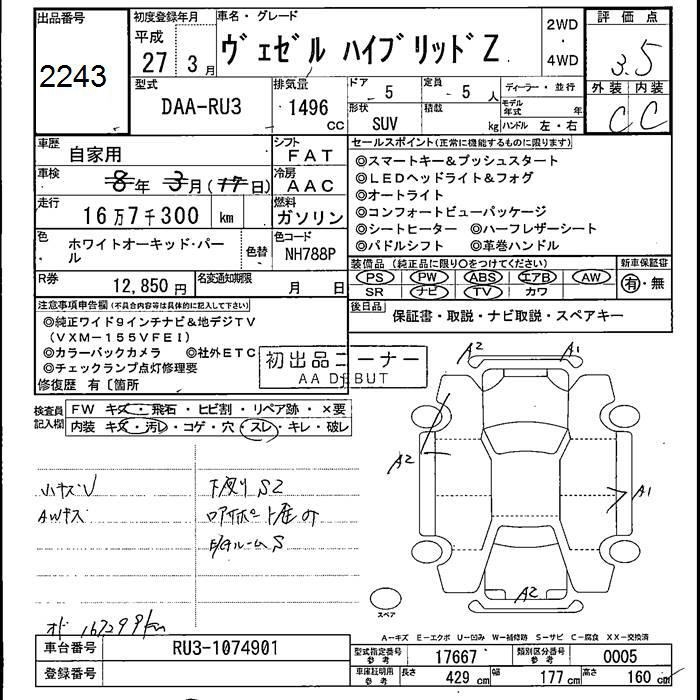 出品番号
2243
初度登録年月
平成
27年 3月
車名・グレード
ヴェゼル ハイブリッドZ
2WD
・
4WD
評価点
3.5
外装 内装
C C
型式
DAA-RU3
排気量
1496
cc
ドア
5
定員
5 人
形状
SUV
積載
kg
ディーラー・並行
モデル年式 年
ハンドル 左・右
車歴
自家用
シフト
FAT
車検
8年 3月(17日)
冷房
AAC
走行
16万7千300 km
燃料
ガソリン
色
ホワイトオーキッド・パール
色替
色コード
NH788P
R券
12,850円
名変通知期限
月 日
セールスポイント(正常に機能するものに限ります)
◎スマートキー&プッシュスタート
◎LEDヘッドライト&フォグ
◎オートライト
◎コンフォートビューパッケージ
◎シートヒーター ◎ハーフレザーシート
◎パドルシフト ◎革巻ハンドル
装備品(純正品に限り○をつけてください)
PS PW ABS エアB AW
SR ナビ TV カワ
新車保証書
有・無
後日品
保証書・取説・ナビ取説・スペアキー
注意事項申告欄(不具合内容等は具体的に記入して下さい)
◎純正ワイド9インチナビ&地デジTV
(VXM-155VFEI)
◎カラーバックカメラ ◎社外ETC
◎チェックランプ点灯修理要
修復歴 有〔箇所
初出品コーナー
AA DEBUT
検査員記入欄
FW キズ・飛石・ヒビ割・リペア跡・×要
内装 キズ・汚レ・コゲ・穴・スレ・キレ・破レ
小キズU
AWキズ
下廻りS2
E/GルームS
オド 167299km
A2 A1
A2
A1
A2
スペア
A-キズ E-エクボ U-凹み W-補修跡 S-サビ C-腐食 XX-交換済
車台番号
RU3-1074901
登録番号
型式指定番号 参考
17667
類別区分番号 参考
0005
車庫証明用 参考
長さ 429 cm
幅 177 cm
高さ 160 cm